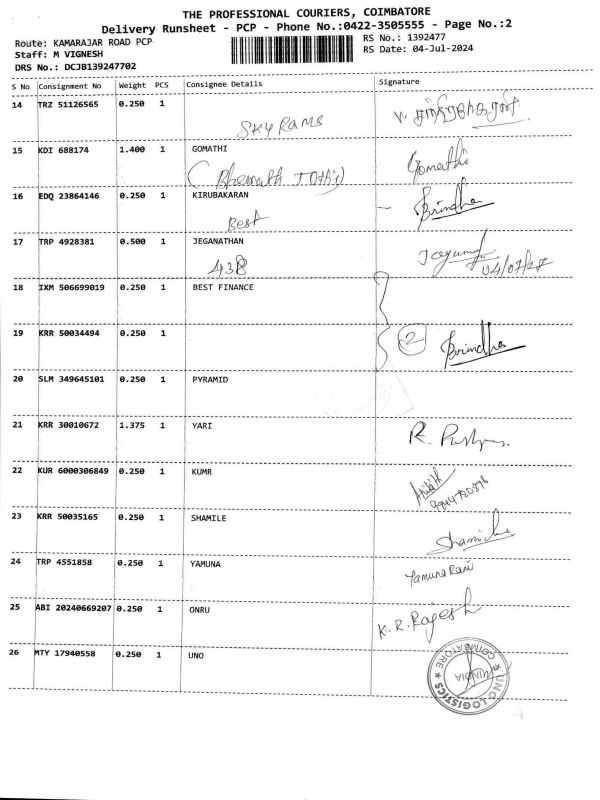 THE PROFESSIONAL COURIERS, COIMBATORE
Delivery Runsheet - PCP - Phone No.:0422-3505555 - Page No.:2
Route: KAMARAJAR ROAD PCP
RS No.: 1392477
Staff: M VIGNESH
RS Date: 04-Jul-2024
DRS No.: DCJB139247702
S No Consignment No Weight PCS Consignee Details Signature
14 TRZ 51126565 0.250 1
SKY RAMS
15 KDI 688174 1.400 1 GOMATHI Gomathi
16 EDQ 23864146 0.250 1 KIRUBAKARAN Brindha
Best
17 TRP 4928381 0.500 1 JEGANATHAN
438 04/07/24
18 IXM 506699019 0.250 1 BEST FINANCE
19 KRR 50034494 0.250 1 2 Brindha
20 SLM 349645101 0.250 1 PYRAMID
21 KRR 30010672 1.375 1 YARI R.
22 KUR 6000306849 0.250 1 KUMR
23 KRR 50035165 0.250 1 SHAMILE
24 TRP 4551858 0.250 1 YAMUNA Yamuna Rani
25 ABI 20240669207 0.250 1 ONRU K. R. Rajesh
26 MTY 17940558 0.250 1 UNO
UNO LOGISTICS
COIMBATORE